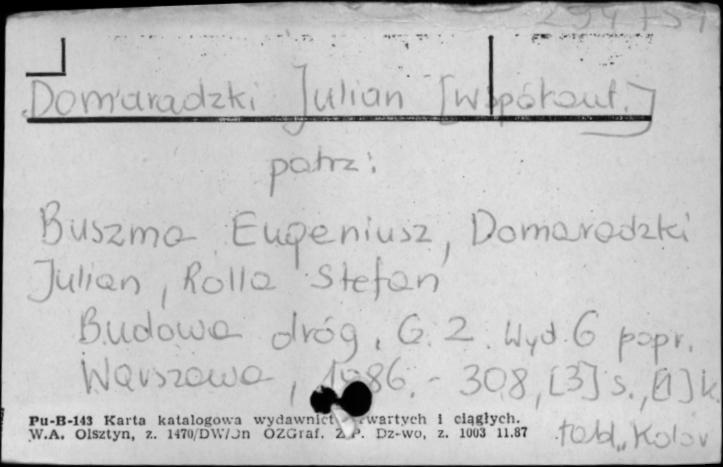 Domaradzki Julian [współaut.]
patrz:
Buszma Eugeniusz, Domaradzki
Julian, Rolla Stefan
Budowa dróg. Cz. 2. Wyd. 6 popr.
Warszawa, 1986. - 308, [3] s., [1] k.
tabl., Kolor
Pu-B-143 Karta katalogowa wydawnict zwartych i ciągłych.
W.A. Olsztyn, z. 1470/DW/Dn OZGraf. Z.P. Dz-wo, z. 1003 11.87